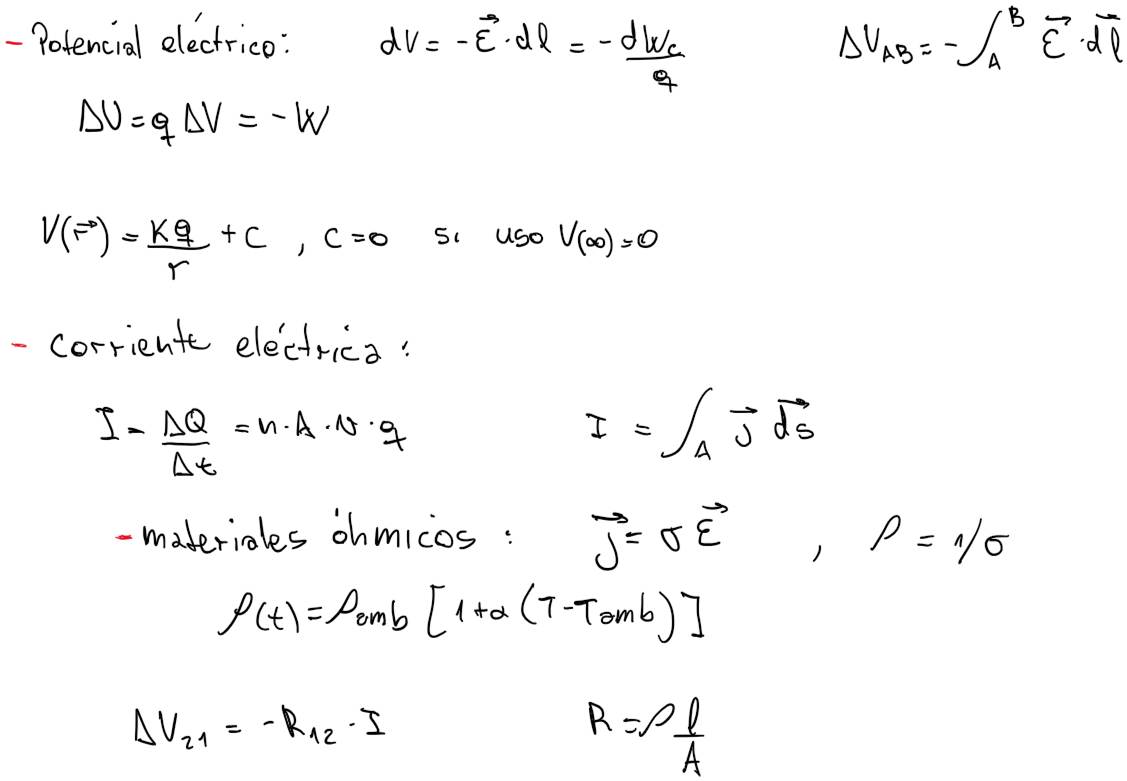 - Potencial eléctrico: dV = -E⃗·dl = -dWc/q ΔV_AB = -∫_A^B E⃗·dl⃗
ΔU = q ΔV = -W
V(r⃗) = Kq/r + C , C=0 si uso V(∞)=0
- corriente eléctrica:
I = ΔQ/Δt = n·A·v·q I = ∫_A j⃗ ds⃗
- materiales óhmicos: j⃗ = σE⃗ , ρ = 1/σ
ρ(t) = ρamb [1+α(T-Tamb)]
ΔV₂₁ = -R₁₂·I R = ρ l/A